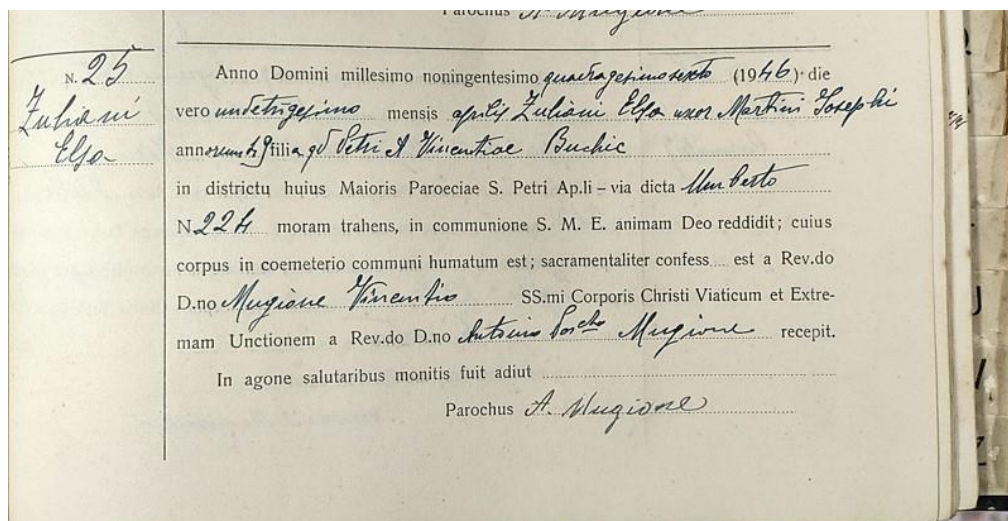 Parochus A. Mugione
N. 25
Zuliani
Elsa
Anno Domini millesimo noningentesimo quadragesimosexto (1946) die
vero undetrigesimo mensis aprilis Zuliani Elsa uxor Martini Josephi
annorum filia qd Petri et Vincentiae Buchic
in districtu huius Maioris Paroeciae S. Petri Ap.li – via dicta Umberto
N. 224 moram trahens, in communione S. M. E. animam Deo reddidit; cuius
corpus in coemeterio communi humatum est; sacramentaliter confess.... est a Rev.do
D.no Mugione Vincentio SS.mi Corporis Christi Viaticum et Extre-
mam Unctionem a Rev.do D.no Antonio Par.cho Mugione recepit.
In agone salutaribus monitis fuit adiut
Parochus A. Mugione